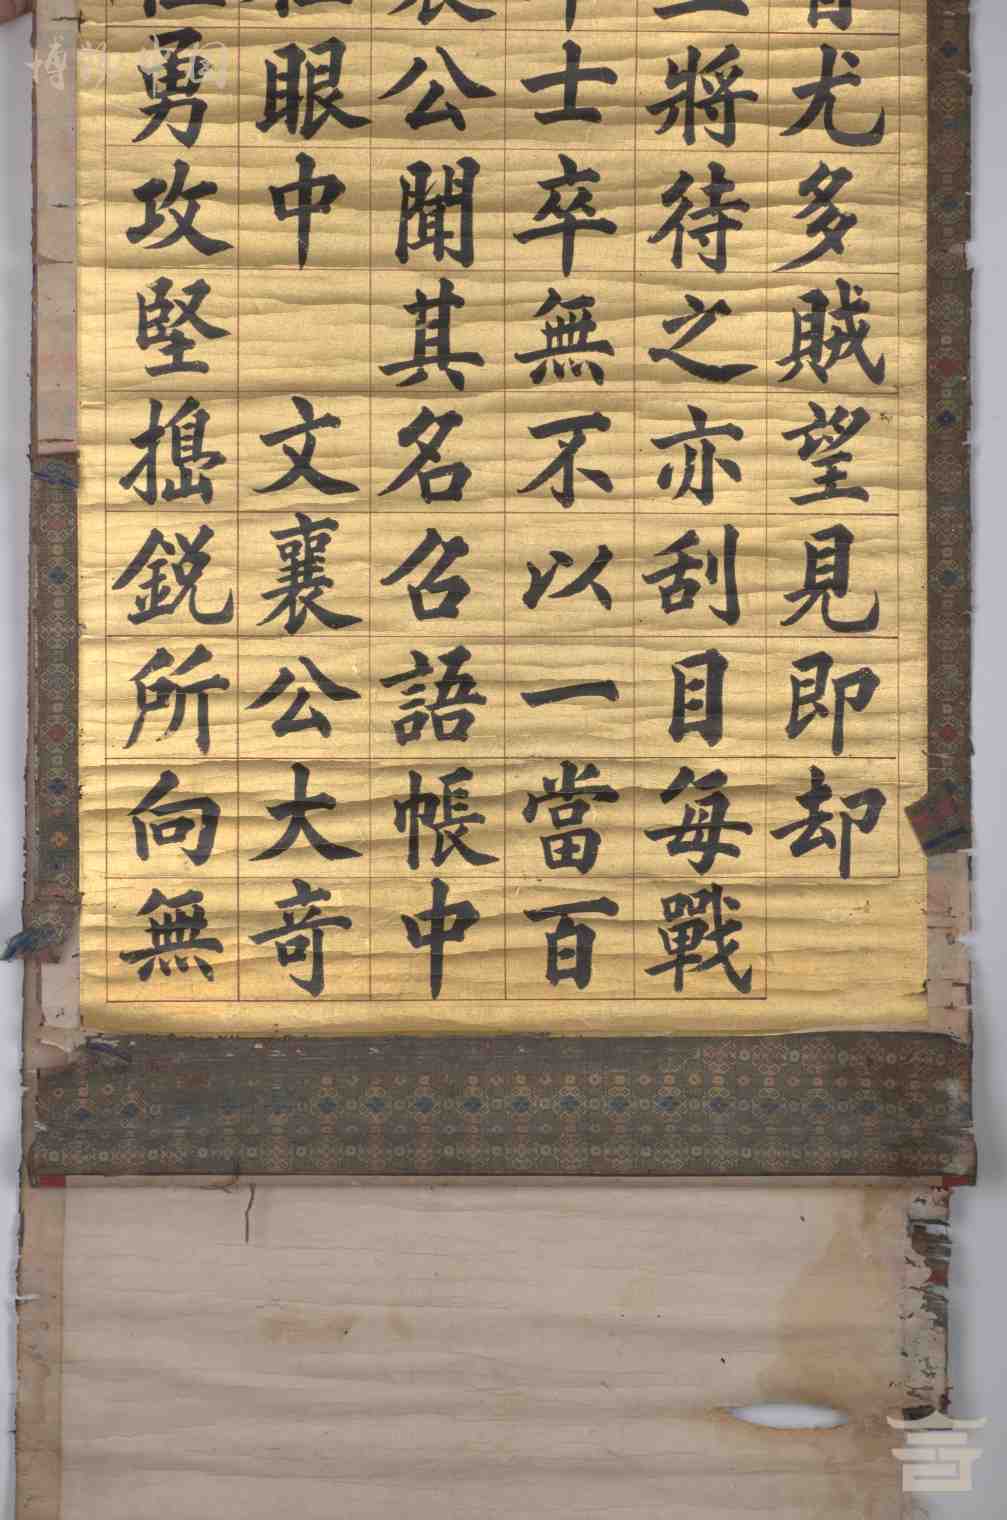 尤多賊望見即却
將待之亦刮目每戰
士卒無不以一當百
公聞其名召語帳中
眼中 文襄公大奇
勇攻堅搗鋭所向無